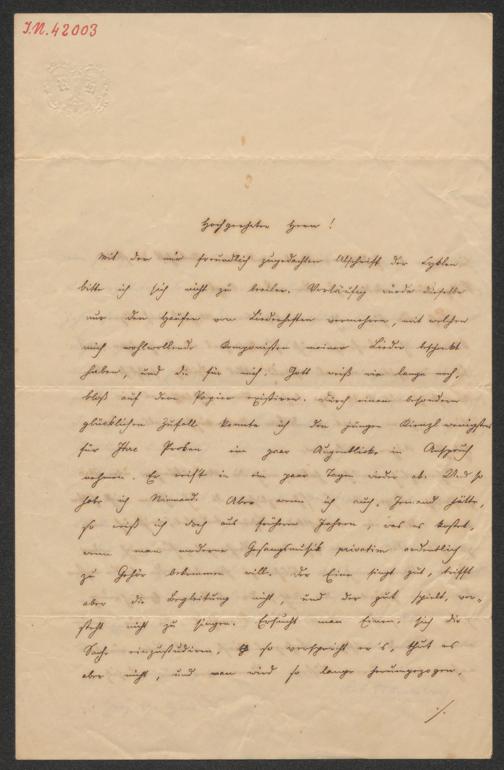 I.N. 42003
Hochgeehrter Herr!
Mit der mir freundlich zugedachten Abschrift der Cyklen
bitte ich sich nicht zu beeilen. Vorläufig würde dieselbe
nur den Haufen von Liederheften vermehren, mit welchen
mich wohlwollende Componisten meiner Lieder beschenkt
haben, und die für mich, Gott weiß wie lange noch,
bloß auf dem Papier existiren. Durch einen besonderen
glücklichen Zufall konnte ich den jungen Kienzl wenigstens
für Ihre Proben ein paar Augenblicke in Anspruch
nehmen. Er reist in ein paar Tagen wieder ab. Und so
habe ich Niemand. Aber wenn ich auch Jemand hätte,
so weiß ich doch aus frühern Jahren, was es kostet,
wenn man moderne Gesangsmusik privatim ordentlich
zu Gehör bekommen will. Der Eine singt gut, trifft
aber die Begleitung nicht, und der gut spielt, ver-
steht nicht zu singen. Ersucht man Einen, sich die
Sache einzustudiren, so verspricht er's, thut es
aber nicht, und man wird so lange herumgezogen,
./.